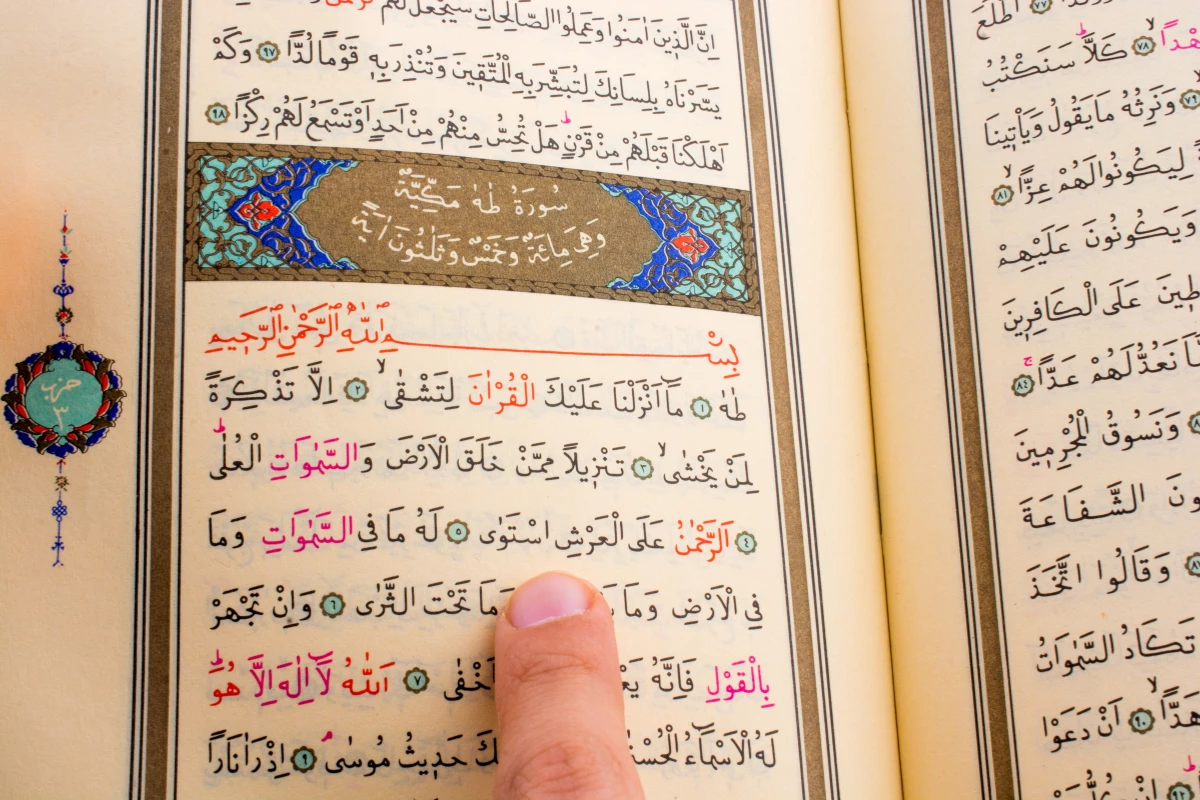 اِنَّ الَّذ۪ينَ اٰمَنُوا وَعَمِلُوا الصَّالِحَاتِ سَيَجْعَلُ لَهُمُ
يَسَّرْنَاهُ بِلِسَانِكَ لِتُبَشِّرَ بِهِ الْمُتَّق۪ينَ وَتُنْذِرَ بِه۪ قَوْمًا لُدًّا ٩٧ وَكَمْ
اَهْلَكْنَا قَبْلَهُمْ مِنْ قَرْنٍ هَلْ تُحِسُّ مِنْهُمْ مِنْ اَحَدٍ اَوْ تَسْمَعُ لَهُمْ رِكْزًا ٩٨
سُورَةُ طٰهٰ مَكِّيَّةٌ
وَهِيَ مِائَةٌ وَخَمْسٌ وَثَلٰثُونَ اٰيَةً
بِسْمِ اللّٰهِ الرَّحْمٰنِ الرَّح۪يمِ
طٰهٰ ١ مَٓا اَنْزَلْنَا عَلَيْكَ الْقُرْاٰنَ لِتَشْقٰىۙ ٢ اِلَّا تَذْكِرَةً
لِمَنْ يَخْشٰىۙ ٣ تَنْز۪يلاً مِمَّنْ خَلَقَ الْاَرْضَ وَالسَّمٰوَاتِ الْعُلٰىۜ
٤ اَلرَّحْمٰنُ عَلَى الْعَرْشِ اسْتَوٰى ٥ لَهُ مَا فِي السَّمٰوَاتِ وَمَا
فِي الْاَرْضِ وَمَا وَمَا تَحْتَ الثَّرٰى ٦ وَاِنْ تَجْهَرْ
بِالْقَوْلِ فَاِنَّهُ اَخْفٰى ٧ اَللّٰهُ لَٓا اِلٰهَ اِلَّا هُوَۜ
لَهُ الْاَسْمَٓاءُ الْحَد۪يثُ مُوسٰىۢ ٩ اِذْ رَاٰ نَارًا
حزب
٣
٧٧ اَطَّلَعَ
٧٨ كَلَّاۜ سَنَكْتُبُ
٧٩ وَنَرِثُهُ مَا يَقُولُ وَيَأْت۪ينَا
لِيَكُونُوا لَهُمْ عِزًّاۙ ٨١
وَيَكُونُونَ عَلَيْهِمْ
عَلَى الْكَافِر۪ينَ
نَعُدُّ لَهُمْ عَدًّاۚ ٨٤
وَنَسُوقُ الْمُجْرِم۪ينَ
الشَّفَاعَةَ
وَقَالُوا اتَّخَذَ
تَكَادُ السَّمٰوَاتُ
هَدًّاۙ ٩٠ اَنْ دَعَوْا
٩٢